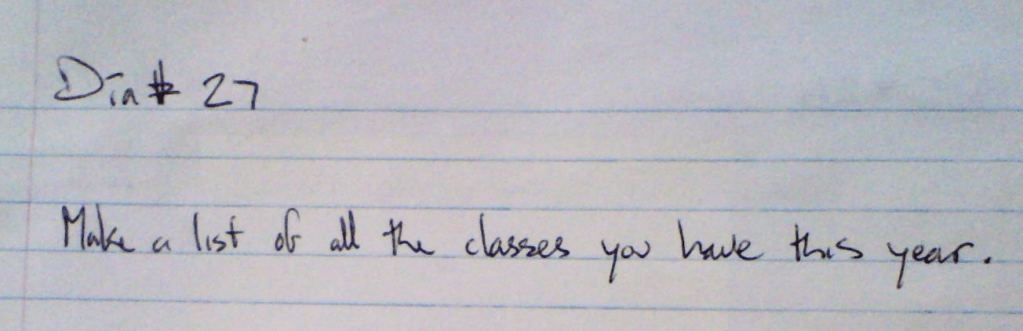 Dia # 27
Make a list of all the classes you have this year.